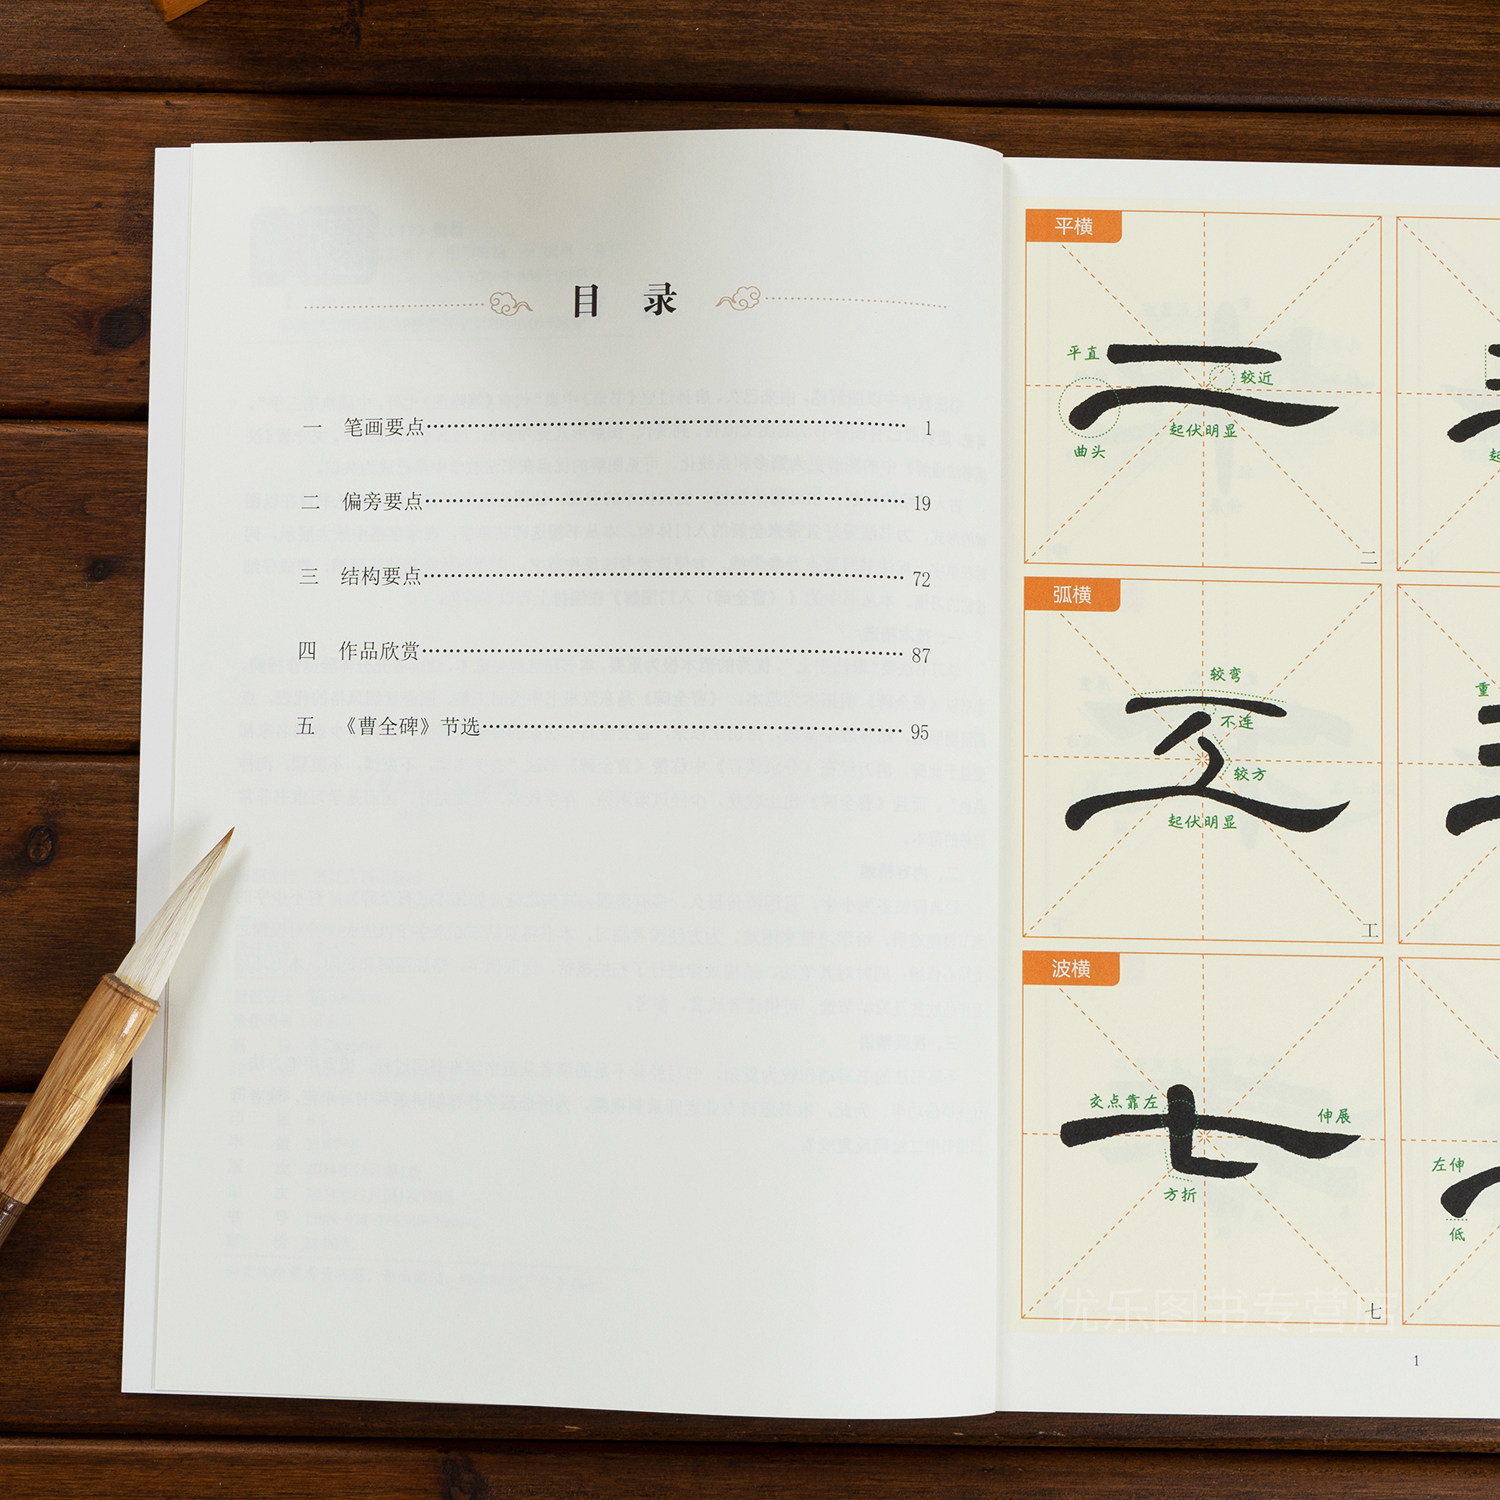 目 录
一 笔画要点 1
二 偏旁要点 19
三 结构要点 72
四 作品欣赏 87
五 《曹全碑》节选 95
平横
平直
较近
曲头
起伏明显
二
弧横
较弯
不连
较方
起伏明显
工
重
波横
交点靠左
伸展
方折
七
左伸
低
优乐图书专营店
1